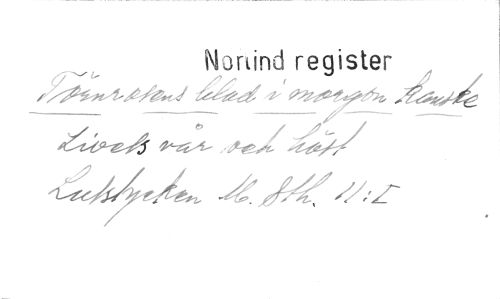 Norlind register
Törnrosens blad i morgon kanske
Livets vår och höst
Lutstycken M. Sth. II:I